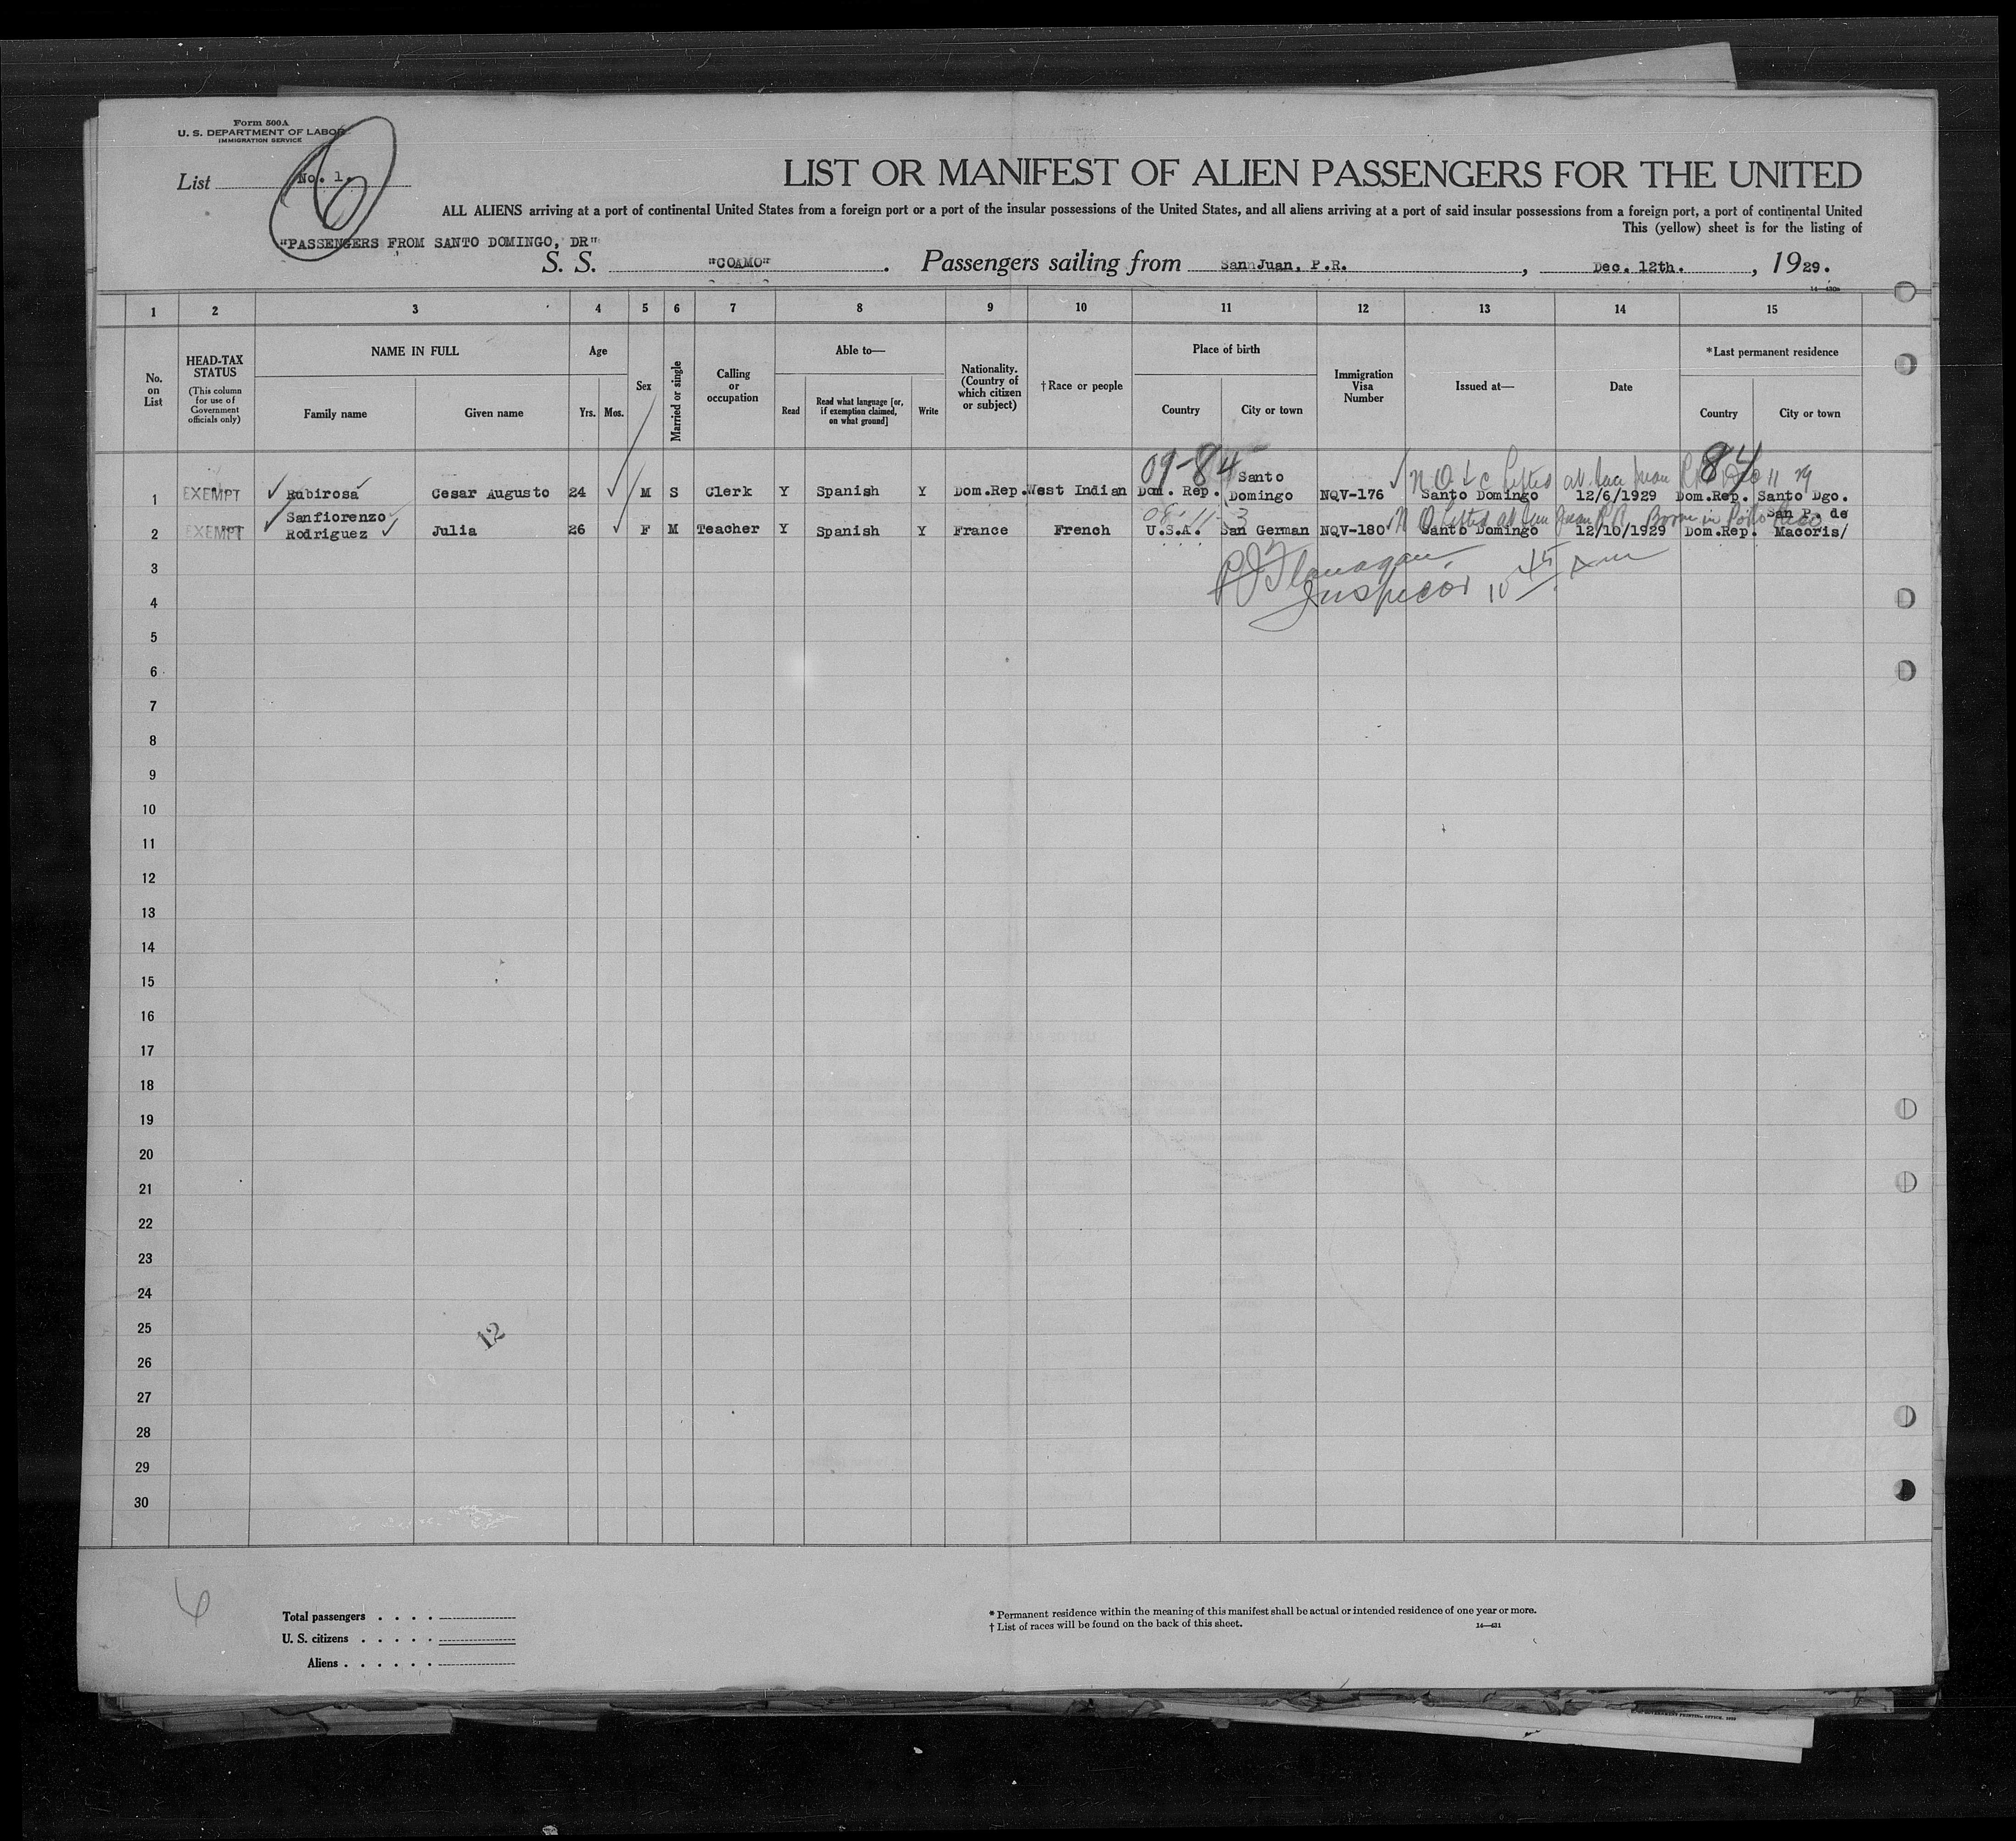 Form 500A
U. S. DEPARTMENT OF LABOR
IMMIGRATION SERVICE
List No. 1.
6
LIST OR MANIFEST OF ALIEN PASSENGERS FOR THE UNITED
ALL ALIENS arriving at a port of continental United States from a foreign port or a port of the insular possessions of the United States, and all aliens arriving at a port of said insular possessions from a foreign port, a port of continental United
This (yellow) sheet is for the listing of
"PASSENGERS FROM SANTO DOMINGO, DR"
S. S. "COAMO". Passengers sailing from San Juan, P.R., Dec. 12th., 1929.
1 2 3 4 5 6 7 8 9 10 11 12 13 14 15
No. on List
HEAD-TAX STATUS
(This column for use of Government officials only)
NAME IN FULL
Family name Given name
Age
Yrs. Mos.
Sex
Married or single
Calling or occupation
Able to—
Read
Read what language [or, if exemption claimed, on what ground]
Write
Nationality. (Country of which citizen or subject)
† Race or people
Place of birth
Country City or town
Immigration Visa Number
Issued at—
Date
* Last permanent residence
Country City or town
09-84 84
1 EXEMPT Rubirosa Cesar Augusto 24 M S Clerk Y Spanish Y Dom.Rep. West Indian Dom. Rep. Santo Domingo NQV-176 Santo Domingo 12/6/1929 Dom.Rep. Santo Dgo.
2 EXEMPT Sanfiorenzo Rodriguez Julia 26 F M Teacher Y Spanish Y France French U.S.A. San German NQV-180 Santo Domingo 12/10/1929 Dom.Rep. San P. de Macoris/
Born in Porto Rico
Flanagan
Inspector 10 45 Am
3
4
5
6
7
8
9
10
11
12
13
14
15
16
17
18
19
20
21
22
23
24
25
26
27
28
29
30
12
6
Total passengers . . . .
U. S. citizens . . . . .
Aliens . . . . . .
* Permanent residence within the meaning of this manifest shall be actual or intended residence of one year or more.
† List of races will be found on the back of this sheet.
14—431